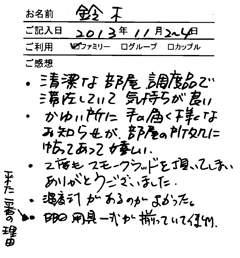 お名前 鈴木
ご記入日 2013年11月2〜4日
ご利用 ☑ファミリー □グループ □カップル
ご感想
・清潔な部屋、調度品で
滞在していて気持ちが良い
・かゆい所に手の届く様な
お知らせが、部屋の所々に
貼ってあって嬉しい。
・で頂いてしまい
ありがとうございました。
・湿度計があるのがよかった。
用具一式が揃っていて
来た一番の理由